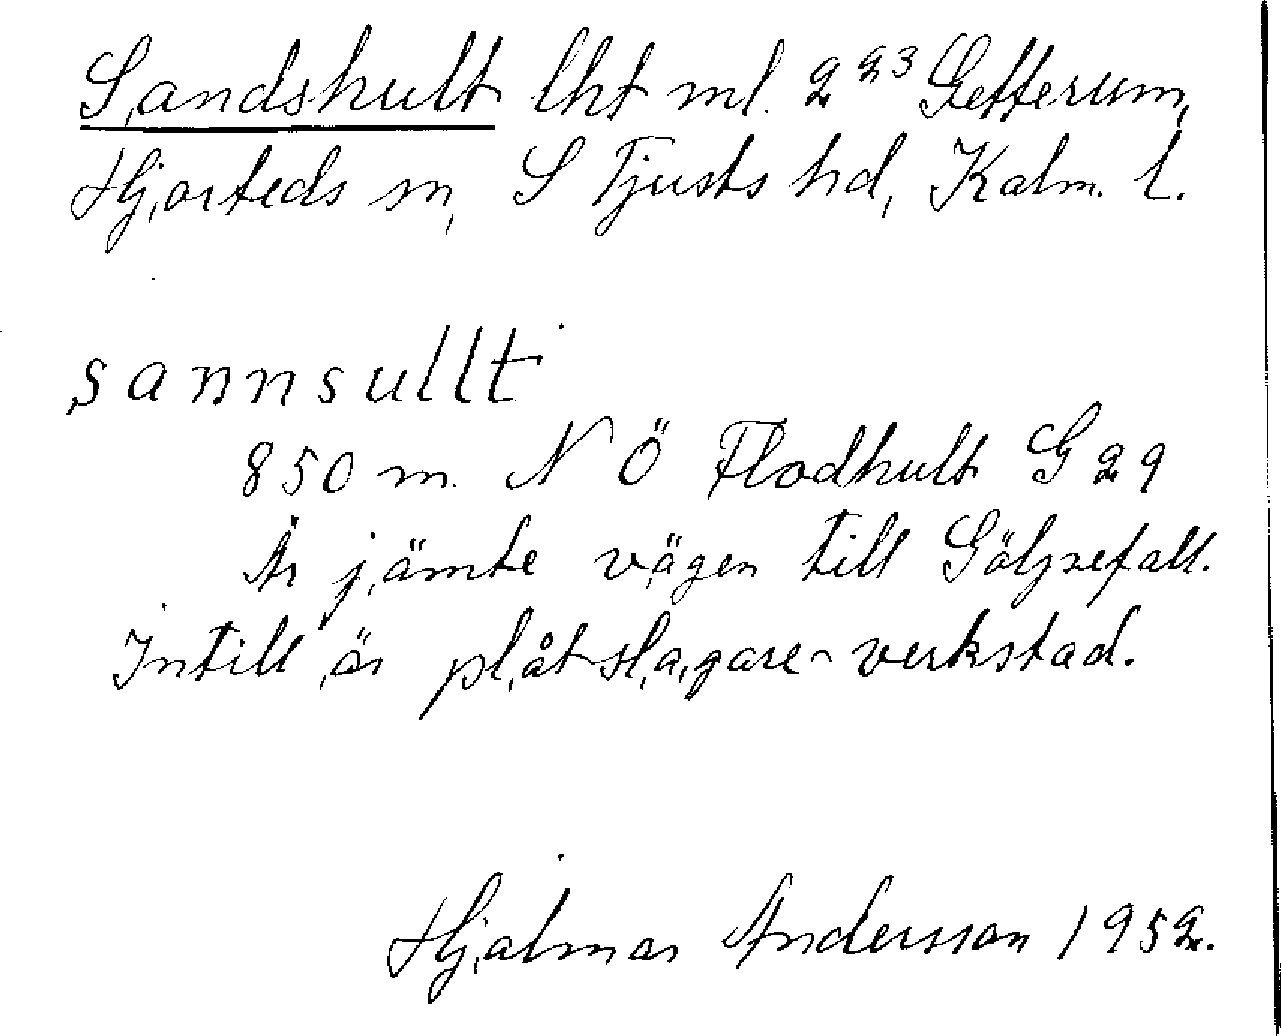 Sandshult lht ml. 2²³ Gefferum,
Hjorteds sn, S Tjusts hd, Kalm. l.
sannsullt
850 m. N Ö Flodhult G 29
Är jämte vägen till Göljrefall.
Intill är plåtslagare-verkstad.
Hjalmar Andersson 1952.